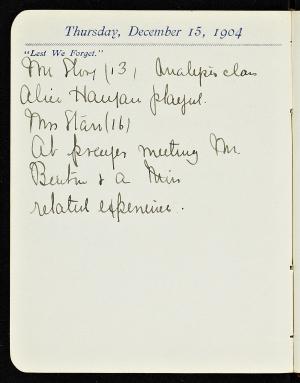 Thursday, December 15, 1904
"Lest We Forget."
Mr Story (13) Analysis class
Alice Hanson played.
Mrs Starr (16)
At prayer meeting Mr.
& a
related experience.